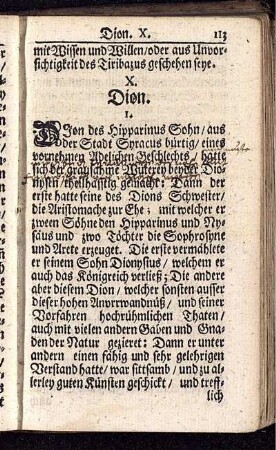 Dion. X. 113
mit Wissen und Willen/oder aus Unvor-
sichtigkeit des Tiribazus geschehen seye.
X.
Dion.
1.
DJon des Hipparinus Sohn/aus
der Stadt Syracus bürtig/eines
vornehmen Adelichen Geschlechts/hatte
sich der Wüterey beyder Dio-
nysien/theilhafftig gemacht: Dann der
erste hatte seine des Dions Schwester/
die Aristomache zur Ehe; mit welcher er
zween Söhne den Hipparinus und Ny-
säus und zwo Töchter die Sophrosyne
und Arete erzeuget. Die erste vermählete
er seinem Sohn Dionysius/welchem er
auch das Königreich verließ; Die andere
aber diesem Dion/welcher sonsten ausser
dieser hohen Anverwandnüß/und seiner
Vorfahren hochrühmlichen Thaten/
auch mit vielen andern Gaben und Gna-
den der Natur gezieret: Dann er unter
andern einen fähig und sehr gelehrigen
Verstand hatte/war sittsamb/und zu al-
lerley guten Künsten geschickt/und treff-
lich